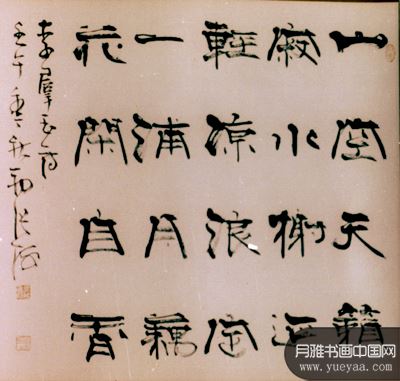 山空天籟
寂水榭延
輕涼浪定
一浦月藕
花閑自香
李羣玉詩
壬午
秋
月雅书画中国网
www.yueyaa.com